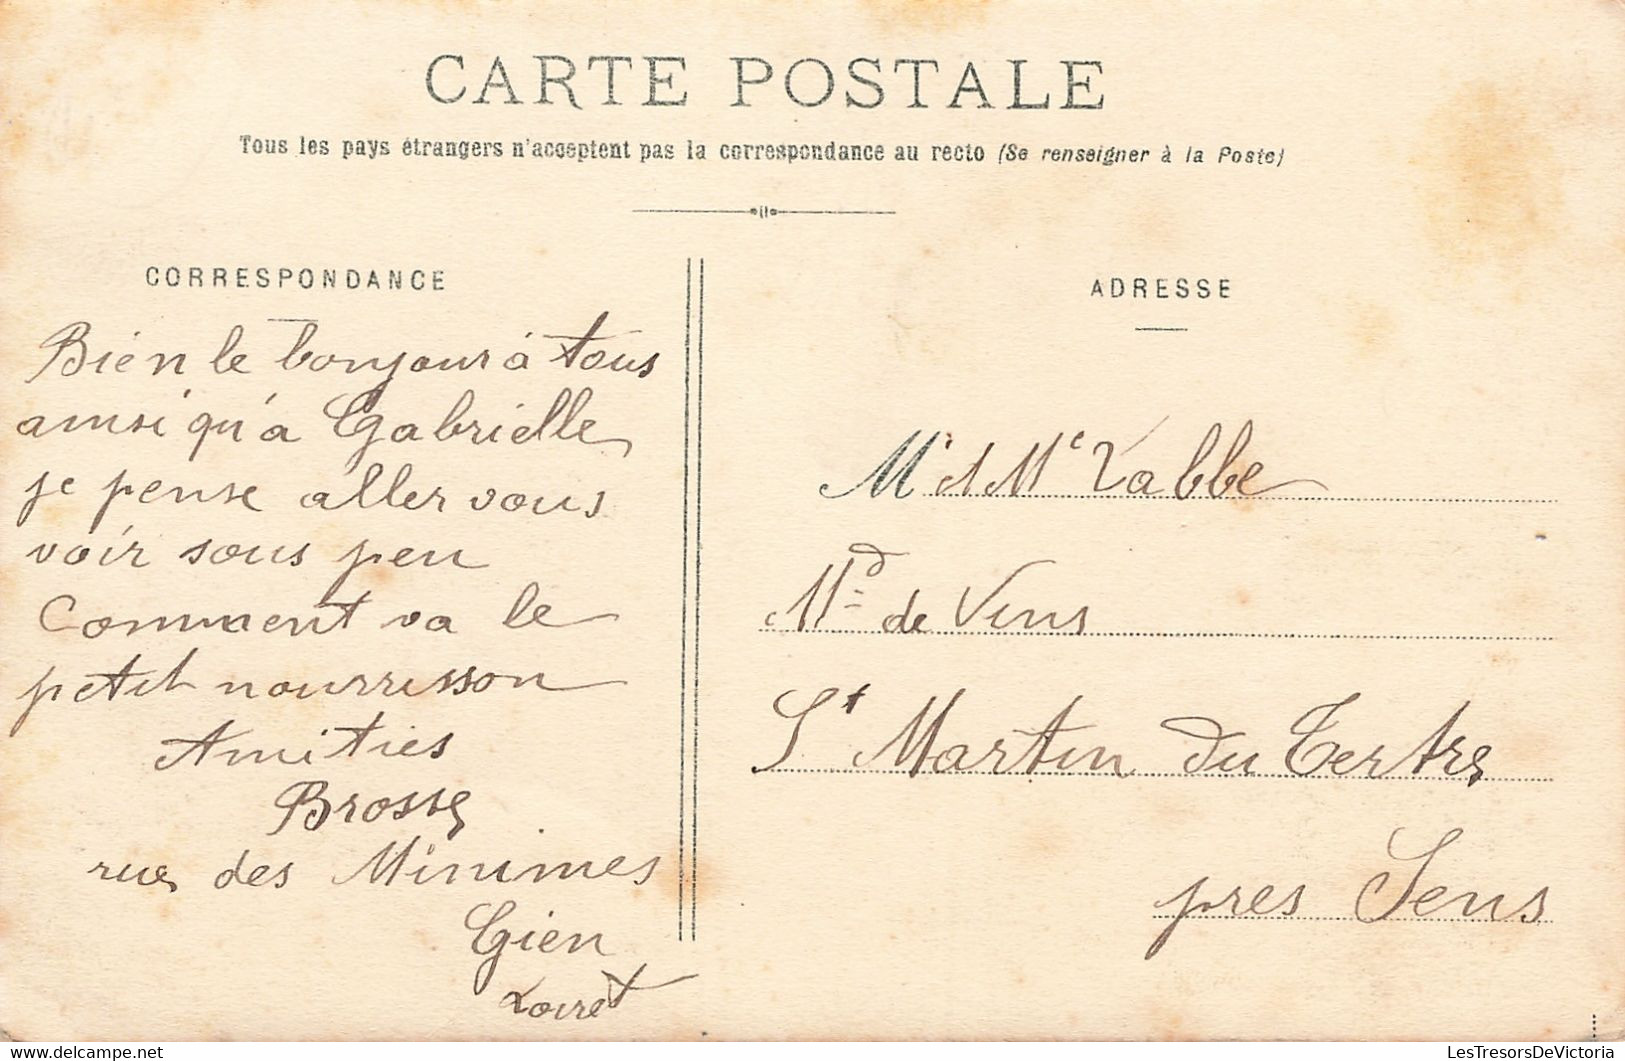 CARTE POSTALE
Tous les pays étrangers n'acceptent pas la correspondance au recto (Se renseigner à la Poste)
CORRESPONDANCE
Bien le bonjour à tous
ainsi qu'à Gabrielle
je pense aller vous
voir sous peu
Comment va le
petit nourrisson
Amitiés
Brosse
rue des Minimes
Gien
Loiret
ADRESSE
Mr & Me Labbe
Md de Vins
St Martin du Tertre
pres Sens
LesTresorsDeVictoria
delcampe.net